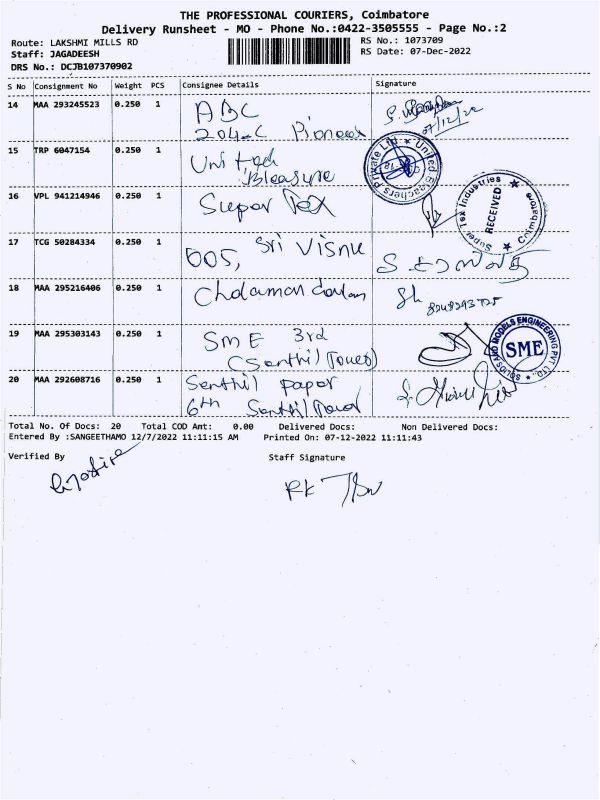 THE PROFESSIONAL COURIERS, Coimbatore
Delivery Runsheet - MO - Phone No.:0422-3505555 - Page No.:2
Route: LAKSHMI MILLS RD
RS No.: 1073709
Staff: JAGADEESH
RS Date: 07-Dec-2022
DRS No.: DCJB107370902
S No Consignment No Weight PCS Consignee Details Signature
14 MAA 293245523 0.250 1 ABC
204-C Pioneer
07/12/22
15 TRP 6047154 0.250 1 United
Bleachers Private Ltd. United
16 VPL 941214946 0.250 1 Super Tex
Super Tex Industries Coimbatore
RECEIVED
17 TCG 50284334 0.250 1 005, Sri Visnu
18 MAA 295216406 0.250 1
19 MAA 295303143 0.250 1 SmE 3rd
(Senthil Tower)
SOLIDS AND MODELS ENGINEERING PVT LTD.
SME
20 MAA 292608716 0.250 1 Senthil papar
6th Senthil Tower
Total No. Of Docs: 20 Total COD Amt: 0.00 Delivered Docs: Non Delivered Docs:
Entered By :SANGEETHAMO 12/7/2022 11:11:15 AM Printed On: 07-12-2022 11:11:43
Verified By Staff Signature